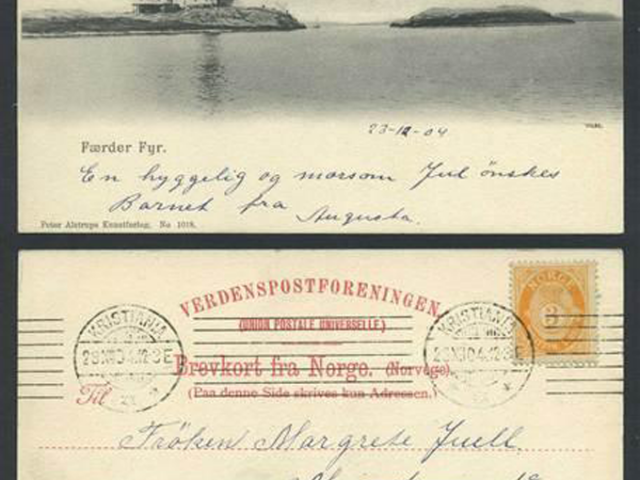 23-12-04
Færder Fyr.
En hyggelig og morsom Jul ønskes
Barnet fra
Augusta.
Peter Alstrups Kunstforlag. No 1018.
VERDENSPOSTFORENINGEN.
(UNION POSTALE UNIVERSELLE.)
Brevkort fra Norge. (Norvège).
(Paa denne Side skrives kun Adressen.)
Til
KRISTIANIA
KRISTIANIA
NORGE
3
Frøken Margrete Juell.